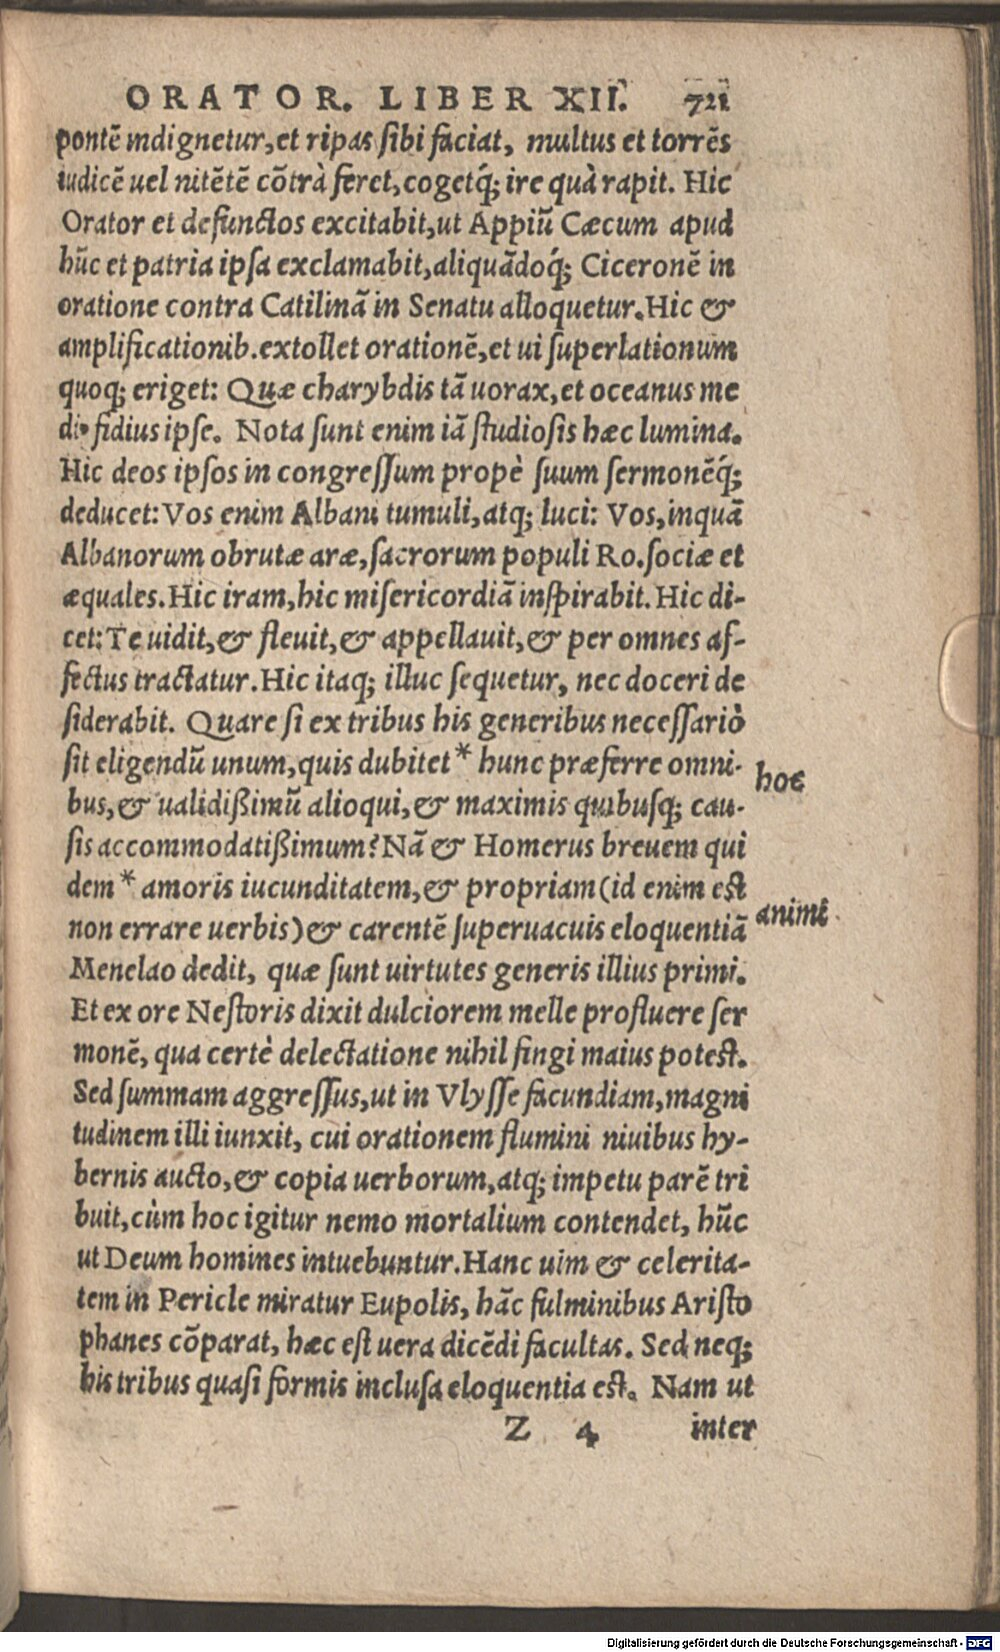 ORATOR. LIBER XII. 721
pontē indignetur, et ripas sibi faciat, multus et torrēs
iudicē uel nitētē cōtrà feret, cogetq́; ire quà rapit. Hic
Orator et defunctos excitabit, ut Appiū Cæcum apud
hūc et patria ipsa exclamabit, aliquādoq́; Ciceronē in
oratione contra Catilinā in Senatu alloquetur. Hic &
amplificationib. extollet orationē, et ui superlationum
quoq; eriget: Quæ charybdis tā uorax, et oceanus me
dius fidius ipse. Nota sunt enim iā studiosis hæc lumina.
Hic deos ipsos in congressum propè suum sermonēq́;
deducet: Vos enim Albani tumuli, atq; luci: Vos, inquā
Albanorum obrutæ aræ, sacrorum populi Ro. sociæ et
æquales. Hic iram, hic misericordiā inspirabit. Hic di-
cet: Te uidit, & fleuit, & appellauit, & per omnes af-
fectus tractatur. Hic itaq; illuc sequetur, nec doceri de
siderabit. Quare si ex tribus his generibus necessariò
sit eligendū unum, quis dubitet * hunc præferre omni-
hoc
bus, & ualidißimū alioqui, & maximis quibusq; cau-
sis accommodatißimum? Nā & Homerus breuem qui
dem * amoris iucunditatem, & propriam (id enim est
animi
non errare uerbis) & carentē superuacuis eloquentiā
Menelao dedit, quæ sunt uirtutes generis illius primi.
Et ex ore Nestoris dixit dulciorem melle profluere ser
monē, qua certè delectatione nihil fingi maius potest.
Sed summam aggressus, ut in Vlysse facundiam, magni
tudinem illi iunxit, cui orationem flumini niuibus hy-
bernis aucto, & copia uerborum, atq; impetu parē tri
buit, cùm hoc igitur nemo mortalium contendet, hūc
ut Deum homines intuebuntur. Hanc uim & celerita-
tem in Pericle miratur Eupolis, hāc fulminibus Aristo
phanes cōparat, hæc est uera dicēdi facultas. Sed neq;
his tribus quasi formis inclusa eloquentia est. Nam ut
Z 4 inter
Digitalisierung gefördert durch die Deutsche Forschungsgemeinschaft - DFG